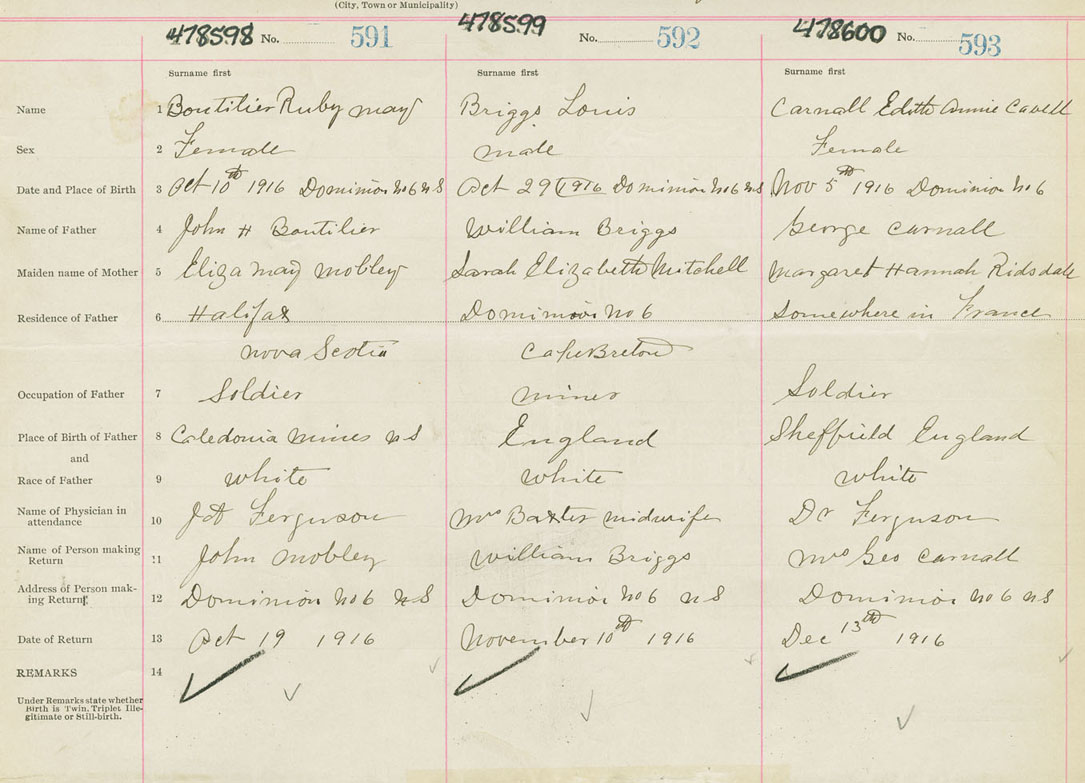 (City, Town or Municipality)
478598 No. 591 478599 No. 592 478600 No. 593
Surname first Surname first Surname first
Name 1 Boutilier Ruby may Briggs Louis Carnall Edith Annie Cavell
Sex 2 Female male Female
Date and Place of Birth 3 Oct 10th 1916 Dominion No 6 NS Oct 29 1916 Dominion No 6 NS Nov 5th 1916 Dominion No 6
Name of Father 4 John H Boutilier William Briggs George Carnall
Maiden name of Mother 5 Eliza may mobley Sarah Elizabeth Mitchell Margaret Hannah Ridsdale
Residence of Father 6 Halifax Dominion No 6 Somewhere in France
nova Scotia Cape Breton
Occupation of Father 7 Soldier miner Soldier
Place of Birth of Father 8 Caledonia mines NS England Sheffield England
and
Race of Father 9 white white white
Name of Physician in
attendance 10 Ferguson Mrs Baxter midwife Dr Ferguson
Name of Person making
Return 11 John mobley William Briggs Mrs Geo Carnall
Address of Person mak-
ing Return 12 Dominion No 6 NS Dominion No 6 NS Dominion No 6 NS
Date of Return 13 Oct 19 1916 November 10th 1916 Dec 13th 1916
REMARKS 14
Under Remarks state whether
Birth is Twin, Triplet Ille-
gitimate or Still-birth.